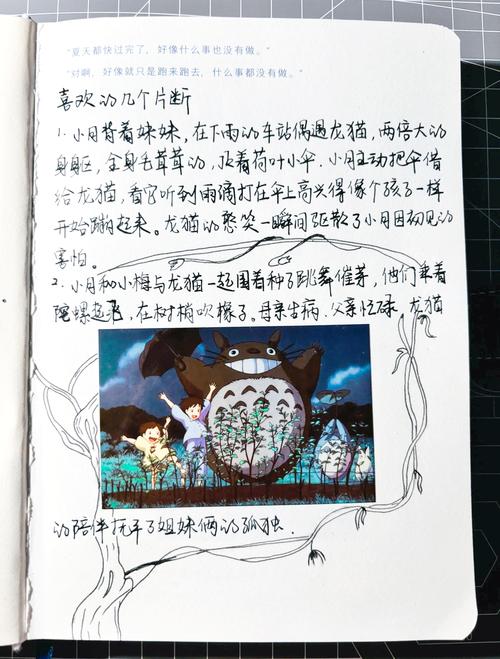 “夏天都快过完了，好像什么事也没有做。”
“对啊，好像就只是跑来跑去，什么事都没有做。”
喜欢的几个片断
1. 小月背着妹妹，在下雨的车站偶遇龙猫，两倍大的
身躯，全身毛茸茸的，顶着荷叶小伞。小月主动把伞借
给龙猫，看它听到雨滴打在伞上高兴得像个孩子一样
开始蹦起来。龙猫的憨笑一瞬间驱散了小月因初见的
害怕。
2. 小月和小梅与龙猫一起围着种子跳舞催芽，他们乘着
陀螺起飞，在树梢吹橡子。母亲生病，父亲忙碌，龙猫
的陪伴抚平了姐妹俩的孤独.